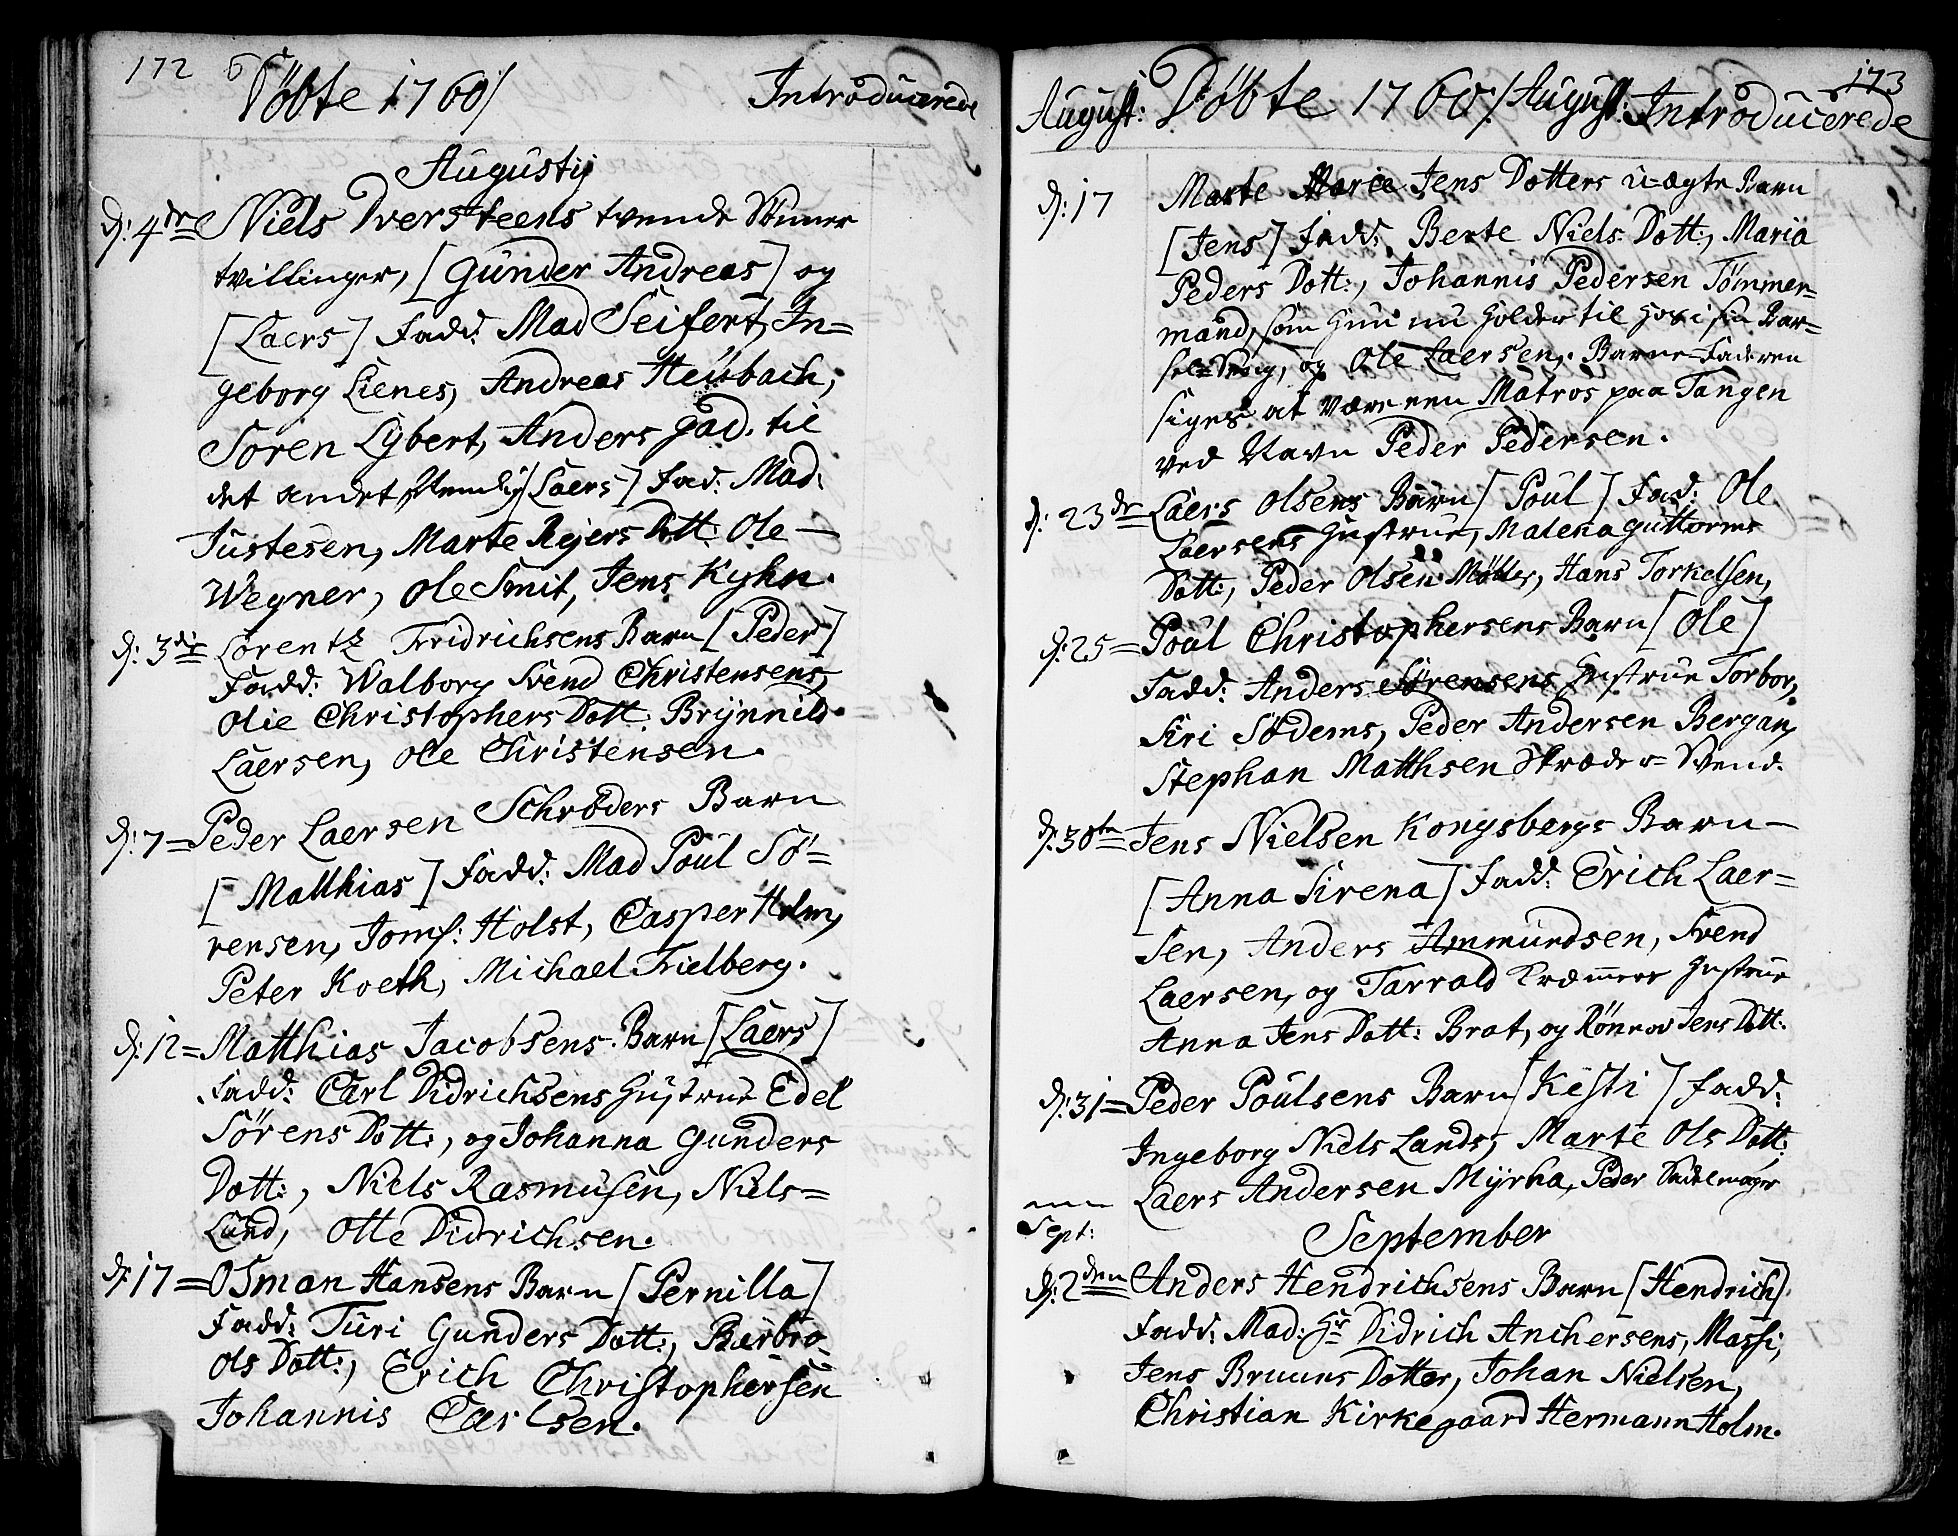 172 Döbte 1760/ Introducerede
Augustij
d: 4de Niels Dversteens tvende Sönner
tvillinger, [Gunder Andreas] og
[Laers] Fadd: Mad Seifert, In=
geborg Lienes, Andreas Heübach,
Soren Lybert, Anders Gad. til
det andet Nemlig [Laers] Fad: Mad:
Justesen, Marte Reyers Dott: Ole
Wegner, Ole Smit, Jens Kyhn.
d: 3die Lorentz Fridrichsens Barn [Peder]
Fadd: Walborg Svend Christensens,
Olie Christophers Dott: Brÿnnild
Laersen, Ole Christensen.
d: 7= Peder Laersen Schröders Barn
[Matthias] Fadd: Mad Poül Sö=
rensen, Jomf: Holst, Casper Holm,
Peter Koeth, Michael Frielberg.
d: 12= Matthias Jacobsens Barn [Laers]
Fadd: Carl Didrichsens Hustrue Edel
Sörens Dott:, og Johanna Gunders
Dott:, Niels Rasmusen, Niels=
Lünd, Otte Didrichsen.
d: 17= Osman Hansens Barn [Pernilla]
Fadd: Turi Gunders Dott:, Barbro
Ols Dott:, Erich Christophersen
Johannis Carlsen.
August: Döbte 1760/ August: Introducerede 173
d: 17 Marte Marie Jens Dotters uægte Barn
[Jens] Fadd: Berte Niels Dott:, Maria
Peders Dott:, Johannis Pedersen Tömmer=
mand, som hun nu holder til hos i sin Bar=
sel=Seng, og Ole Laersen. Barne=Faderen
siges at være een Matros paa Tangen
ved Navn Peder Pedersen.
d: 23de Laers Olsens Barn [Poul] Fad: Ole
Laersens Hustrue, Malena Guttorms
Dott:, Peder Olsen Möller, Hans Torkelsen,
d: 25= Poül Christophersens Barn [Ole]
Fadd: Anders Sörensens Hustrue Torbor,
Siri Södems, Peder Andersen Bergan,
Stephan Matthsen Skræder=Svend.
d: 30te Jens Nielsen Kongsbergs Barn
[Anna Sirena] Fadd: Erich Laer=
sen, Anders Ammundsen, Svend
Laersen, og Tarrald Kræmmers Hustrue
Anna Jens Dott: Brat, og Rönnov Jens Dott:
d: 31= Peder Poülsens Barn [Kisti] Fadd:
Ingeborg Niels Lands, Marte Ols Dott:
Laers Andersen Myrha, Peder Sadelmager
Sept: September
d: 2den Anders Hendrichsens Barn [Hendrich]
Fadd: Mad: Hr Didrich Anchersens, Massi,
Jens Bruuns Dotter, Johan Nielsen,
Christian Kirkegaard Hermann Holm.